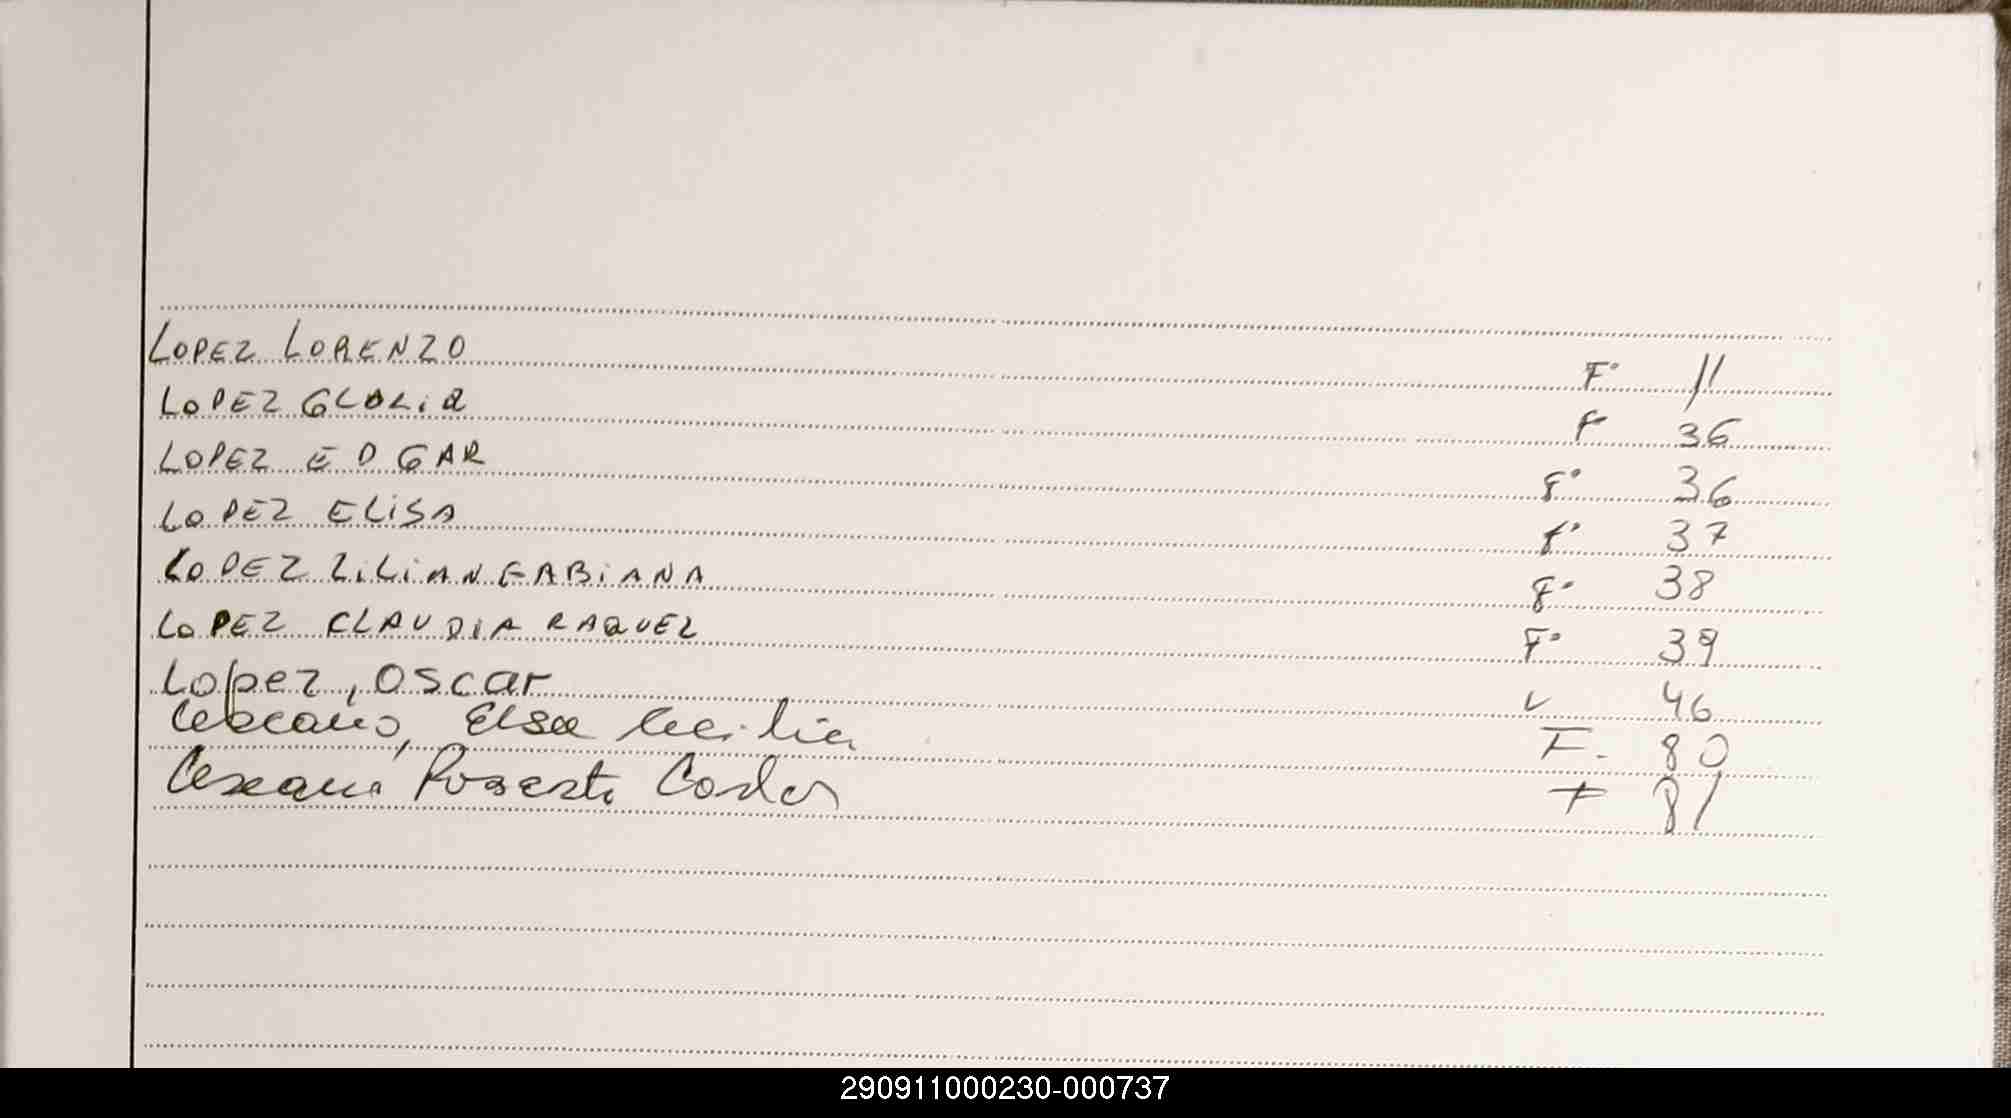 LOPEZ LORENZO F° 11
LOPEZ GLORiA F 36
LOPEZ EDGAR F° 36
LOPEZ ELiSA F° 37
LOPEZ LiLiAN FABiANA F° 38
LOPEZ CLAUDIA RAQUEL F° 39
Lopez, Oscar 46
Lezcano, Elsa Cecilia F. 80
Lezcano Roberto Carlos F 81
290911000230-000737